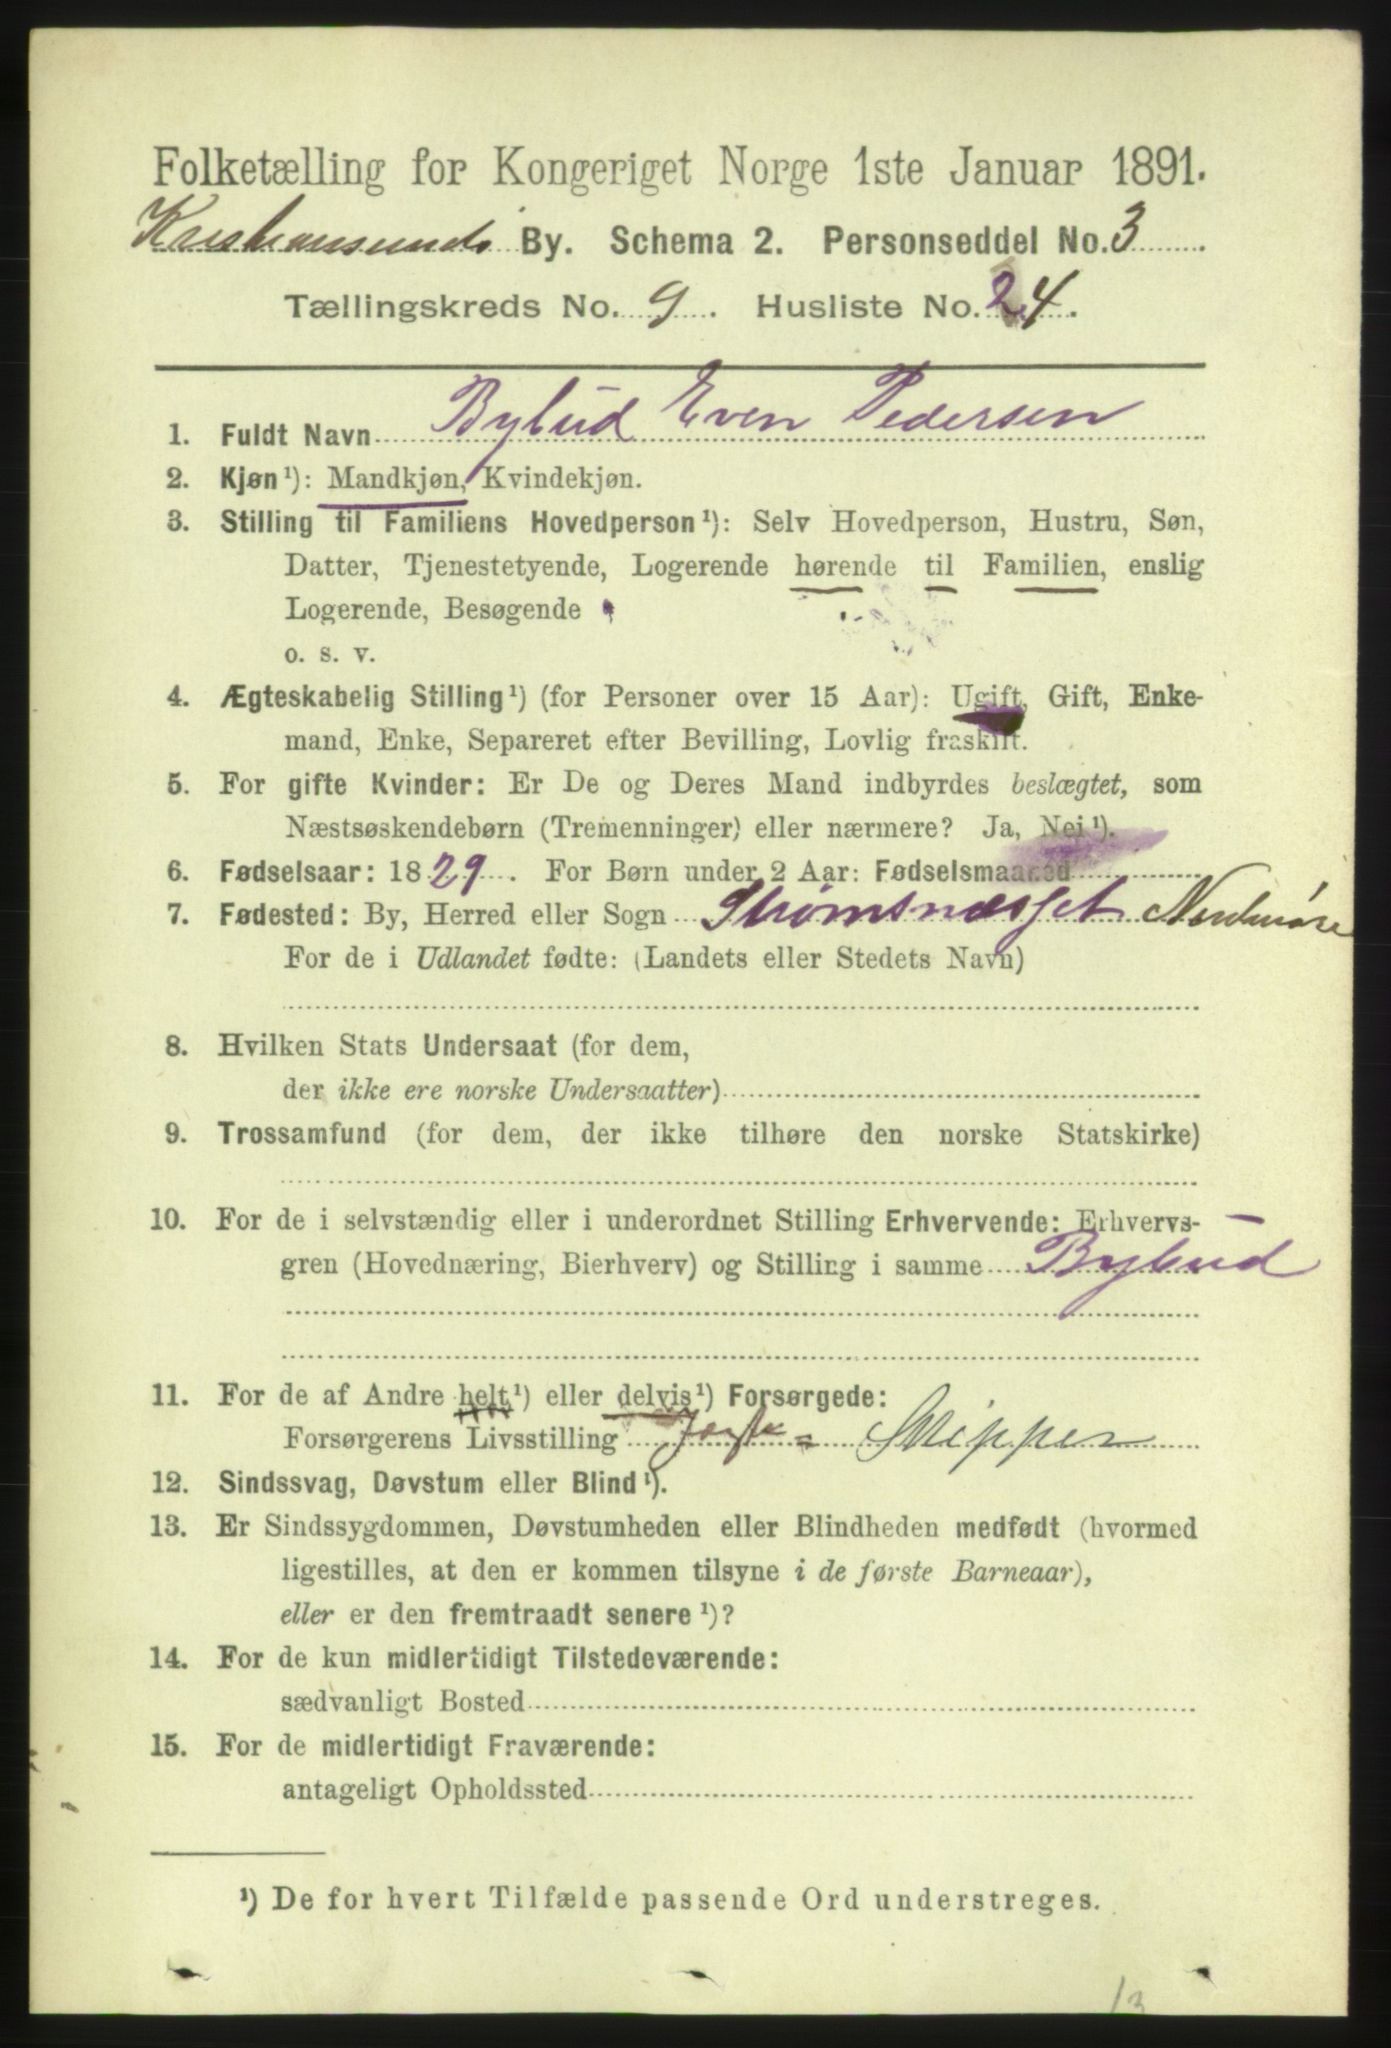 Folketælling for Kongeriget Norge 1ste Januar 1891.
Kristiansunds By. Schema 2. Personseddel No. 3
Tællingskreds No. 9. Husliste No. 24.
1. Fuldt Navn Bybud Even Pedersen
2. Kjøn¹): Mandkjøn, Kvindekjøn.
3. Stilling til Familiens Hovedperson¹): Selv Hovedperson, Hustru, Søn,
Datter, Tjenestetyende, Logerende hørende til Familien, enslig
Logerende, Besøgende
o. s. v.
4. Ægteskabelig Stilling¹) (for Personer over 15 Aar): Ugift, Gift, Enke-
mand, Enke, Separeret efter Bevilling, Lovlig fraskilt.
5. For gifte Kvinder: Er De og Deres Mand indbyrdes beslægtet, som
Næstsøskendebørn (Tremenninger) eller nærmere? Ja, Nei¹).
6. Fødselsaar: 1829. For Børn under 2 Aar: Fødselsmaaned
7. Fødested: By, Herred eller Sogn Strømsnæsset Nordmøre
For de i Udlandet fødte: (Landets eller Stedets Navn)
8. Hvilken Stats Undersaat (for dem,
der ikke ere norske Undersaatter)
9. Trossamfund (for dem, der ikke tilhøre den norske Statskirke)
10. For de i selvstændig eller i underordnet Stilling Erhvervende: Erhvervs-
gren (Hovednæring, Bierhverv) og Stilling i samme Bybud
11. For de af Andre helt¹) eller delvis¹) Forsørgede:
Forsørgerens Livsstilling Skipper
12. Sindssvag, Døvstum eller Blind¹).
13. Er Sindssygdommen, Døvstumheden eller Blindheden medfødt (hvormed
ligestilles, at den er kommen tilsyne i de første Barneaar),
eller er den fremtraadt senere¹)?
14. For de kun midlertidigt Tilstedeværende:
sædvanligt Bosted
15. For de midlertidigt Fraværende:
antageligt Opholdssted
¹) De for hvert Tilfælde passende Ord understreges.
13